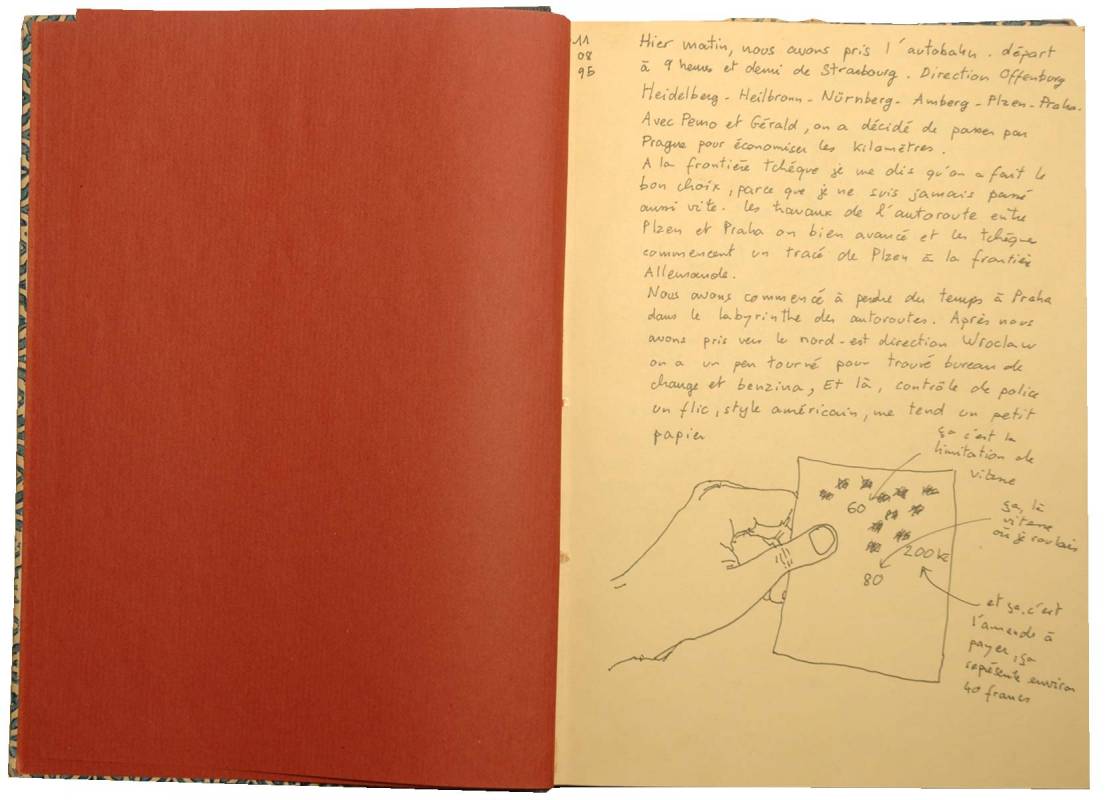 11
08
95
Hier matin, nous avons pris l'autobahn. départ
à 9 heures et demi de Strasbourg. Direction Offenburg
Heidelberg - Heilbronn - Nürnberg - Amberg - Plzen - Praha.
Avec Pemo et Gérald, on a décidé de passer par
Prague pour économiser les kilomètres.
A la frontière tchéque je me dis qu'on a fait le
bon choix, parce que je ne suis jamais passé
aussi vite. les travaux de l'autoroute entre
Plzen et Praha on bien avancé et les tchéque
commencent un tracé de Plzen à la frontière
Allemande.
Nous avons commencé à perdre du temps à Praha
dans le labyrinthe des autoroutes. Après nous
avons pris vers le nord-est direction Wroclaw
on a un peu tourné pour trouvé bureau de
change et benzina, Et là, contrôle de police
un flic, style américain, me tend un petit
papier
ça c'est la
limitation de
vitesse
ça, là
vitesse
où je roulais
60
200 kc
80
et ça, c'est
l'amende à
payer, ça
représente environ
40 francs